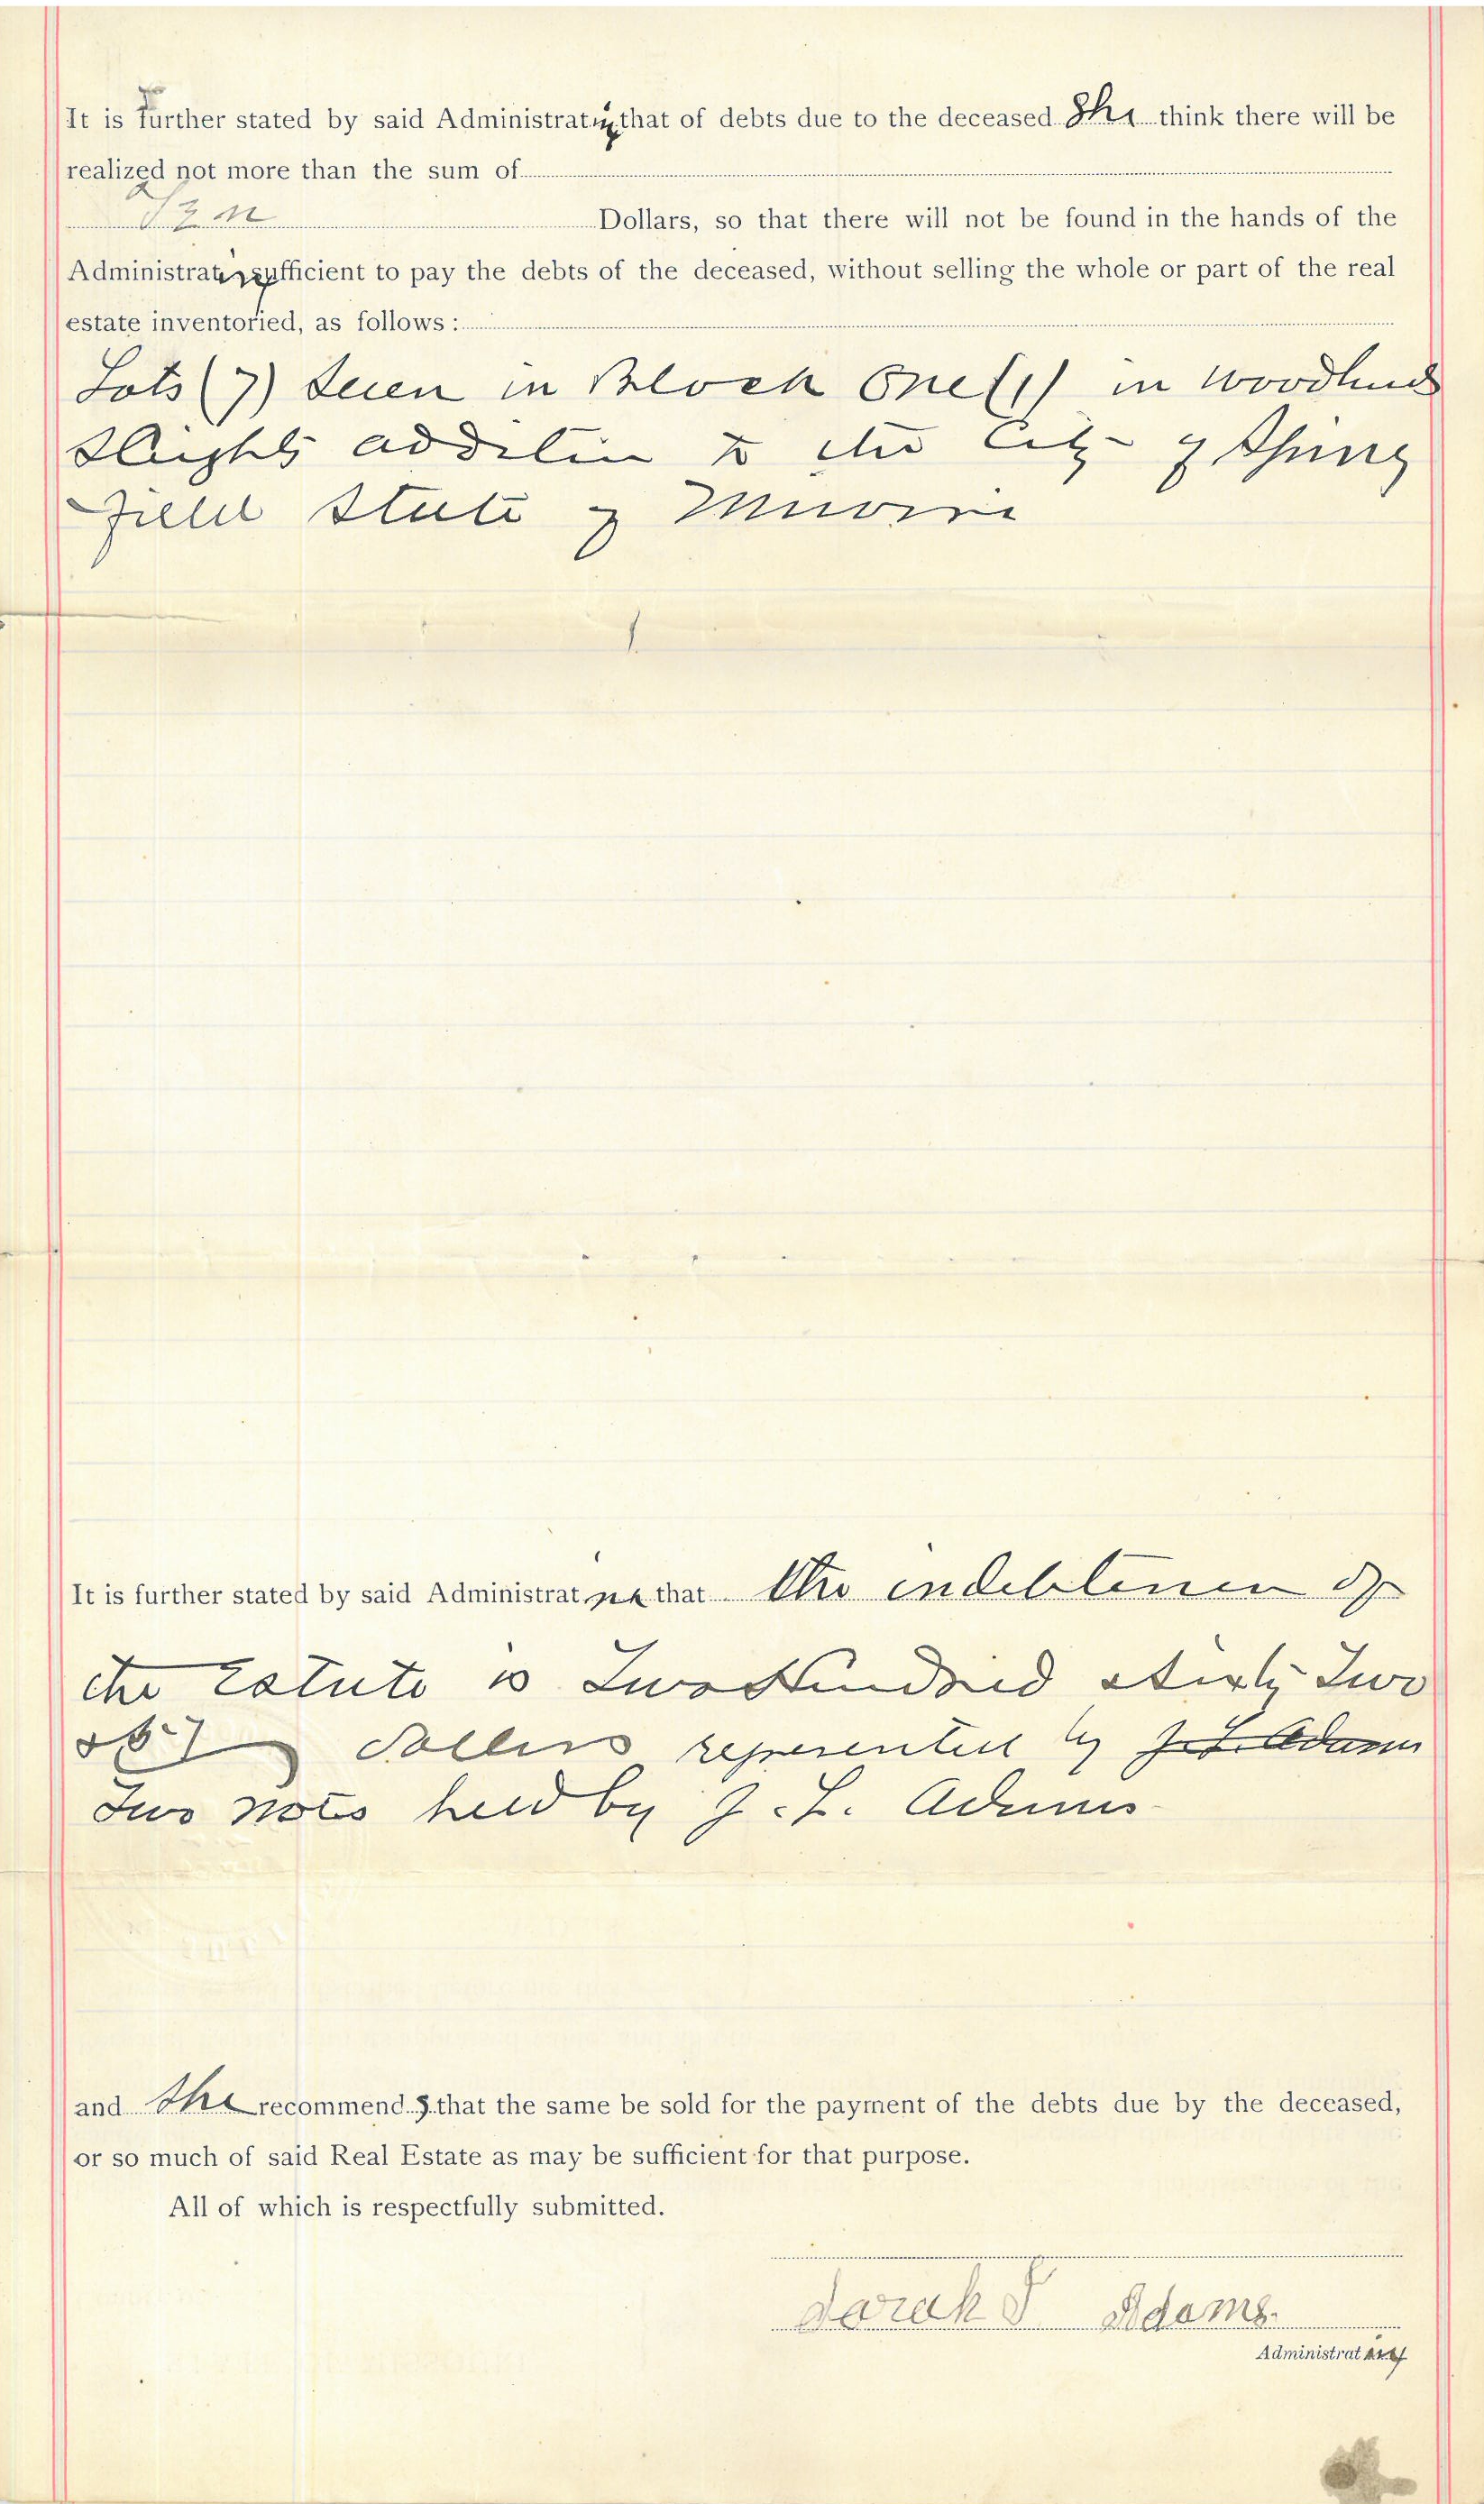 It is further stated by said Administratrix that of debts due to the deceased She think there will be
realized not more than the sum of
Ten Dollars, so that there will not be found in the hands of the
Administratrix sufficient to pay the debts of the deceased, without selling the whole or part of the real
estate inventoried, as follows:
Lots (7) Seven in Block One (1) in Woodland
Heights addition to the City of Spring
field State of Missouri
It is further stated by said Administratrix that the indebtedness of
the Estate is Two Hundred Sixty Two
Dollars represented by J. L. Adams
Two notes held by J. L. Adams
and She recommends that the same be sold for the payment of the debts due by the deceased,
or so much of said Real Estate as may be sufficient for that purpose.
All of which is respectfully submitted.
Sarah Adams
Administratrix